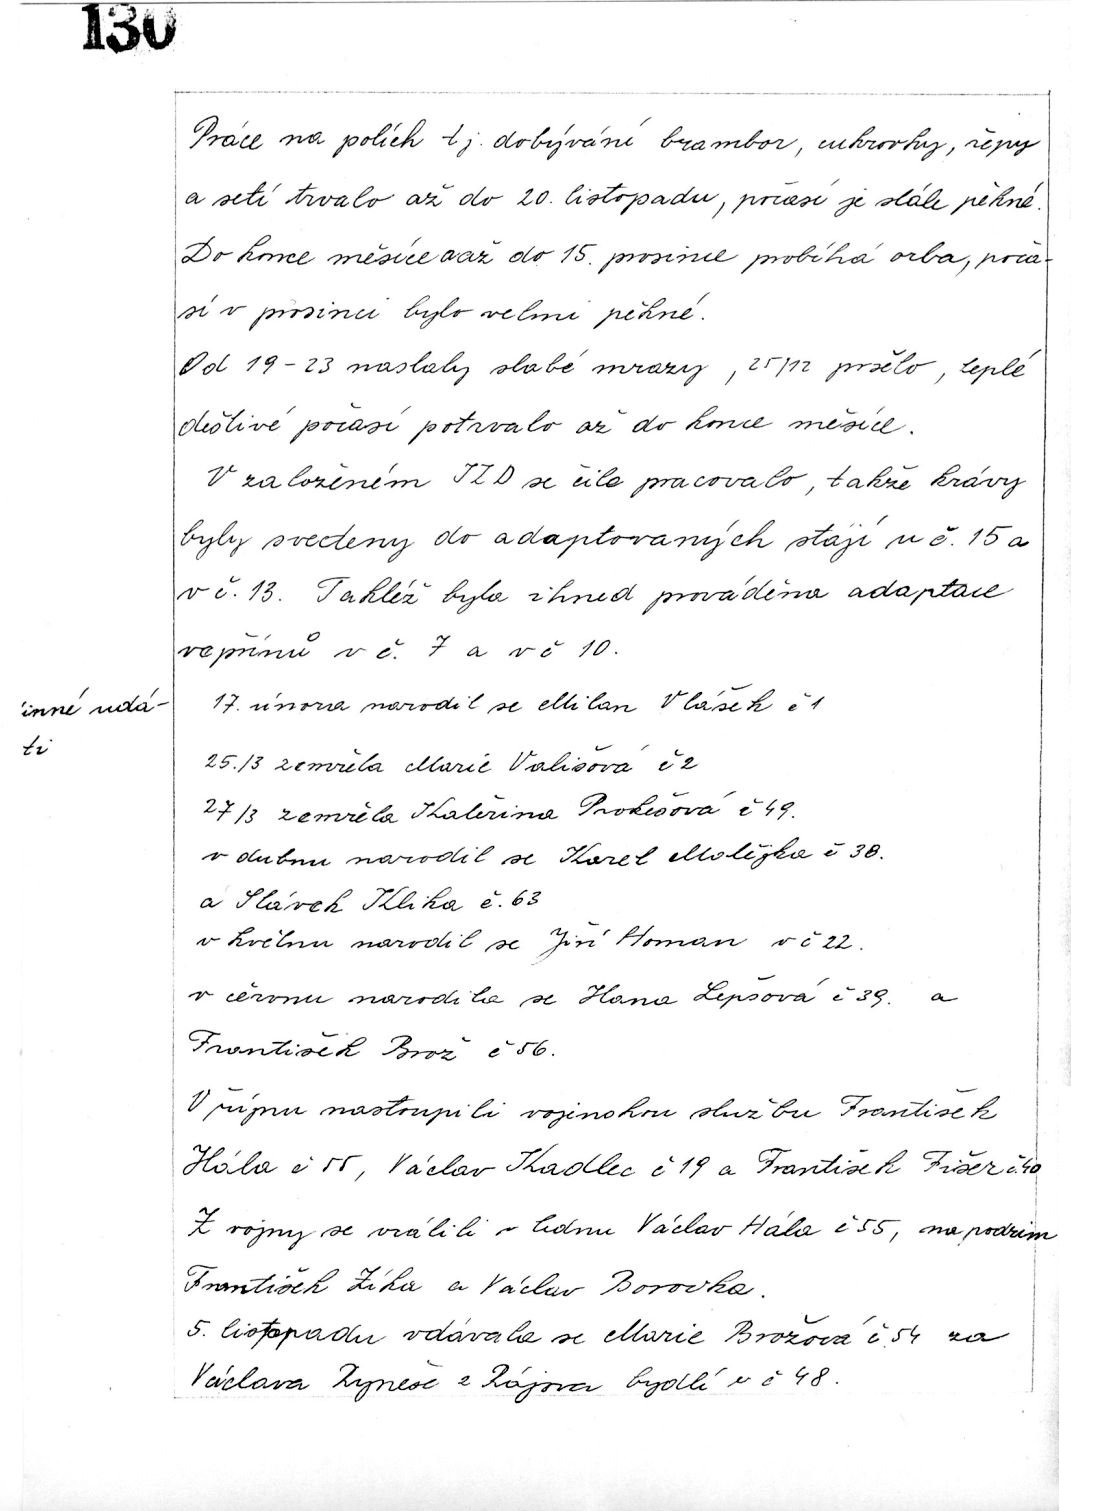 130
Práce na polích t j. dobývání brambor, cukrovky, řepy
a setí trvalo až do 20. listopadu, počasí je stále pěkné.
Do konce měsíce a až do 15. prosince probíhá orba, poča-
sí v prosinci bylo velmi pěkné.
Od 19-23 nastaly slabé mrazy, 25/12 pršelo, teplé
deštivé počasí potrvalo až do konce měsíce.
V založeném JZD se čile pracovalo, takže krávy
byly svedeny do adaptovaných stájí u č. 15 a
v č. 13. Taktéž byla ihned prováděna adaptace
vepřínů v č. 7 a v č 10.
inné udá-
ti
17. února narodil se Milan Vlášek č 1
25./3 zemřela Marie Vališová č 2
27/3 zemřela Kateřina Prokešová č 49.
v dubnu narodil se Karel Motěžka č 38.
a Slávek Klika č. 63
v květnu narodil se Jiří Homan v č 22.
v červnu narodila se Hana Lepšová č 39. a
František Brož č 56.
V říjnu nastoupili vojenskou službu František
Hála č 55, Václav Kadlec č 19 a František Fišer č 40
Z vojny se vrátili v lednu Václav Hála č 55, na podzim
František Zíka a Václav Borovka.
5. listopadu vdávala se Marie Brožová č. 54 za
Václava z bydlí v č 48.